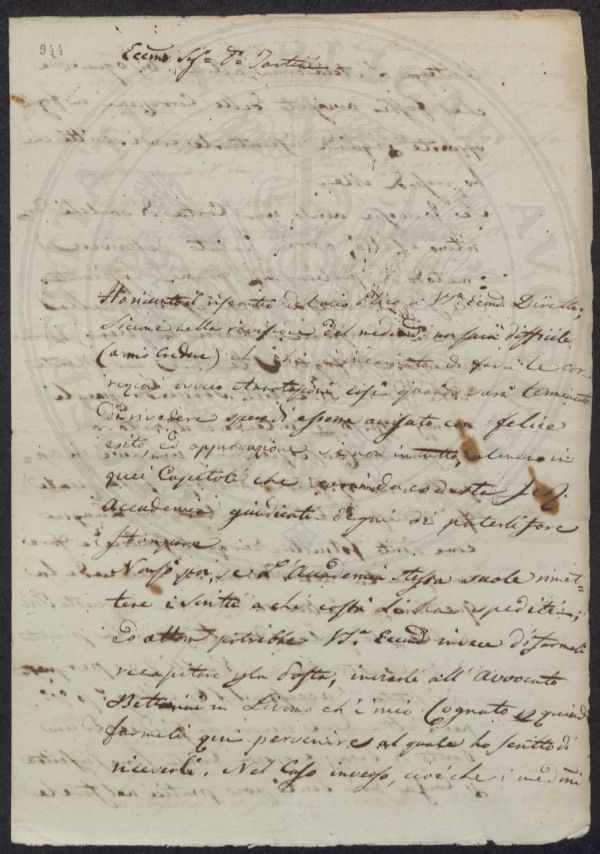 944
Eccmo Sigr Dr Tartini
risposta del mio plico a Va Eccma Diretto,
Siccome nella revisione del med. non sarà difficile
(a mio credere) chi è incaricato di farvi le cor-
rezioni ovvero Annotazioni, così quando sarà terminato
di rivedere spero di essere avvisato con felice
esito, ed approvazione se non in tutto, almeno in
quei Capitoli che codesta
Accademia giudicati degni di poterli fare
stampare
Non so poi, se l'Accademia stessa suole rimet-
tere i scritti a chi costà le ha spediti;
ed allora potrebbe Va Eccma invece di farmeli
recapitare per la Posta, inviarli all'Avvocato
in Livorno ch'è mio Cognato e quindi
farmeli qui pervenire al quale ho scritto di
riceverli. Nel Caso inverso, cioè che i medmi